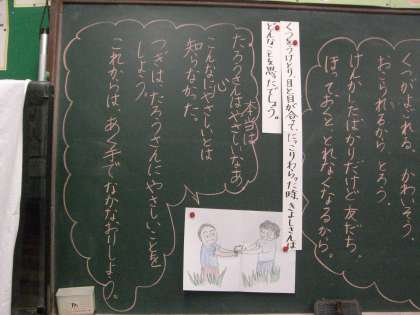 くつがよごれる。かわいそう。
おこられるから、とろう。
けんかしたばかりだけど友だち。
ほっておくと、とれなくなるから。
くつをうけとり、目と目が合って、にっこりわらった時、きよしさんは
どんなことを思ったでしょう。
本当は
たろうさんはやさしいなあ
心
こんなにやさしいとは
知らなかった。
つぎは、たろうさんにやさしいことを
しよう。
これからは、あく手でなかなおりしよう。